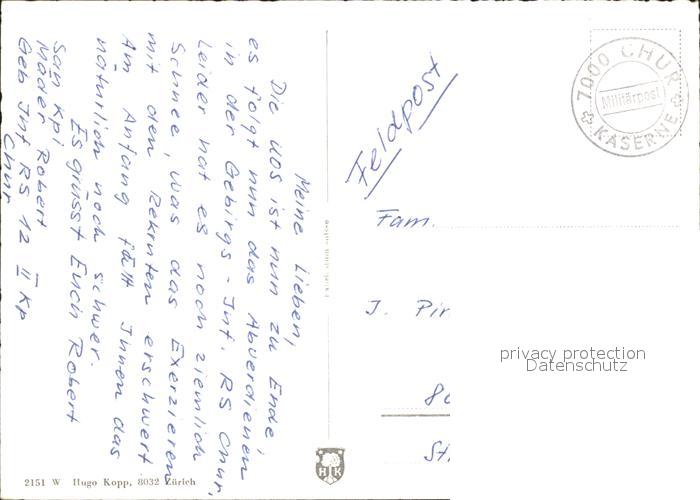 Meine Lieben,
Die UOS ist nun zu Ende,
es folgt nun das Abverdienen
in der Gebirgs-Inf. RS Chur,
Leider hat es noch ziemlich
Schnee, was das Exerzieren
mit den Rekruten erschwert.
Am Anfang fällt Ihnen das
natürlich noch schwer.
Es grüsst Euch Robert
San Kpl
Mäder Robert
Geb Inf RS 12 II Kp
Chur
Feldpost
7000 CHUR
Militärpost
KASERNE
Fam.
J. Pir
80
St.
privacy protection
Datenschutz
H K
2151 W Hugo Kopp, 8032 Zürich